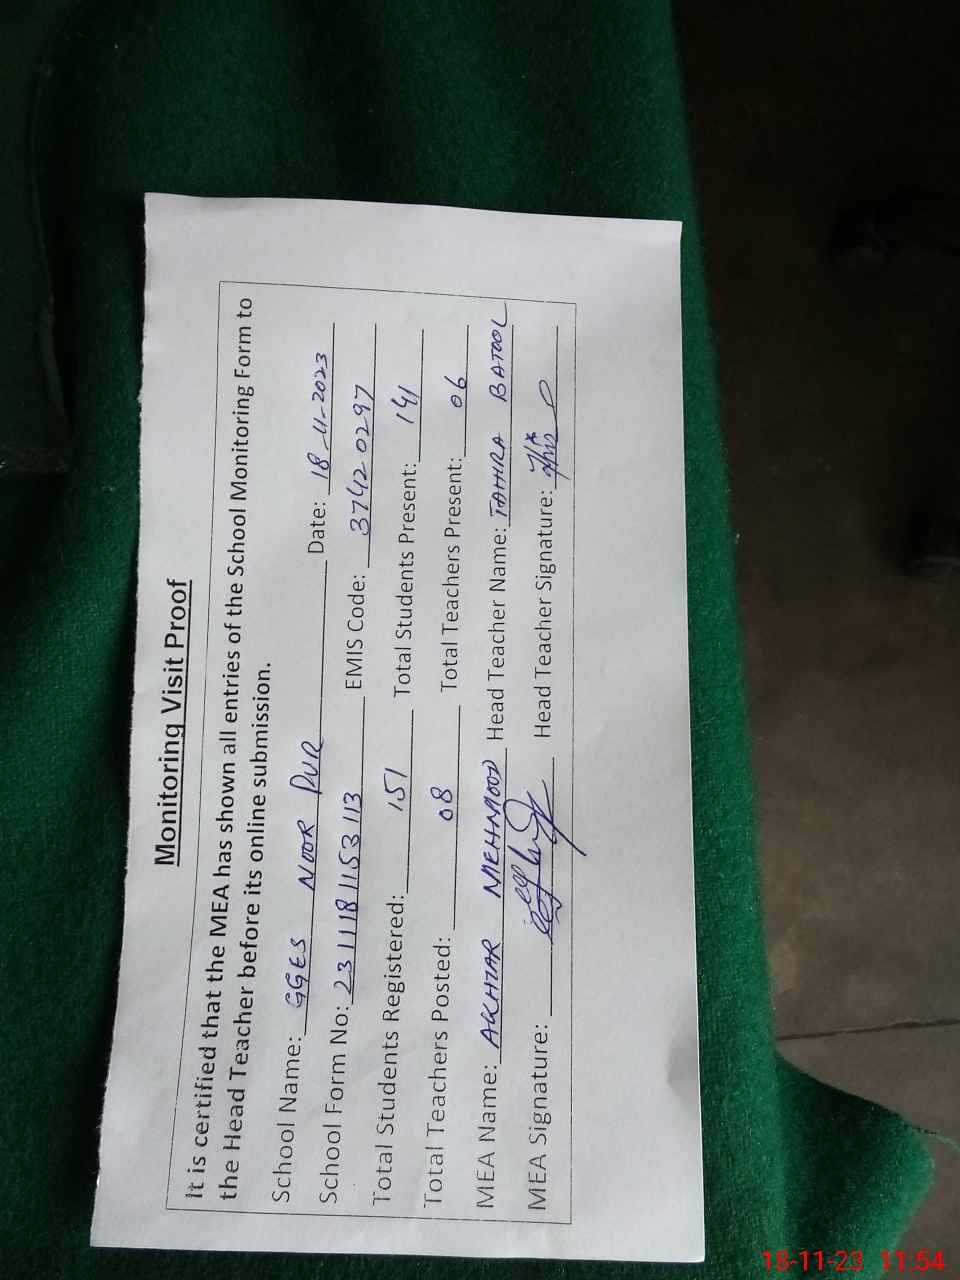 Monitoring Visit Proof
It is certified that the MEA has shown all entries of the School Monitoring Form to
the Head Teacher before its online submission.
School Name: GGES NOOR PUR Date: 18-11-2023
School Form No: 2311181153113 EMIS Code: 37420297
Total Students Registered: 151 Total Students Present: 141
Total Teachers Posted: 08 Total Teachers Present: 06
MEA Name: AKHTAR MEHMOOD Head Teacher Name: TAHIRA BATOOL
MEA Signature: Head Teacher Signature:
18-11-23 11:54